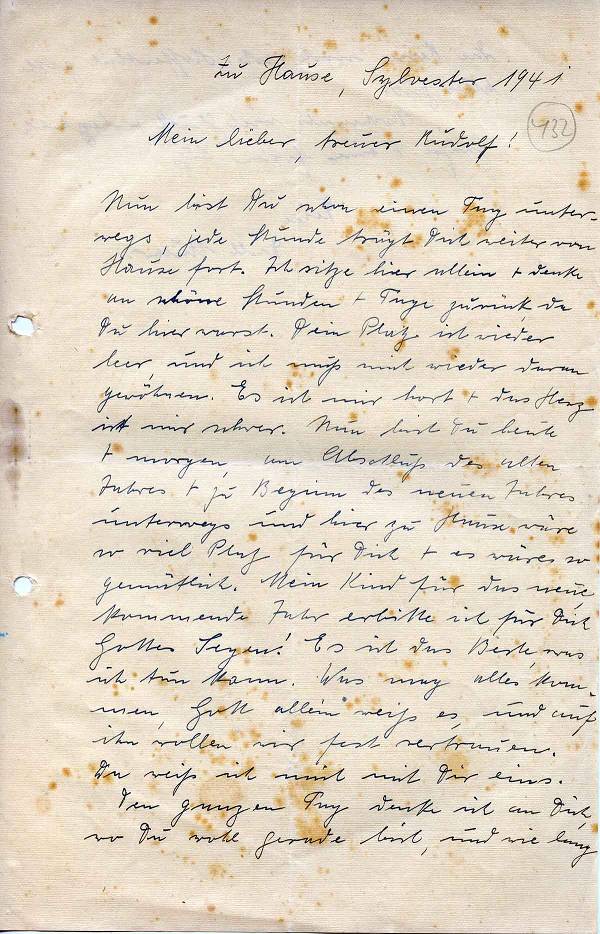 zu Hause, Sylvester 1941
432
Mein lieber, treuer Rudolf!
Nun bist Du schon einen Tag unter-
wegs, jede Stunde trägt Dich weiter von
Hause fort. Ich sitze hier allein + denke
an schöne Stunden + Tage zurück, da
Du hier warst. Dein Platz ist wieder
leer, und ich muß mich wieder daran
gewöhnen. Es ist mir hart + das Herz
ist mir schwer. Nun bist Du heute
+ morgen, am Abschluß des alten
Jahres + zu Beginn des neuen Jahres
unterwegs und hier zu Hause wäre
so viel Platz für Dich + es wäre so
gemütlich. Mein Kind für das neue,
kommende Jahr erbitte ich für Dich
Gottes Segen! Es ist das Beste, was
ich tun kann. Was mag alles kom-
men, Gott allein weiß es, und auf
ihn wollen wir fest vertrauen.
Da weiß ich mich mit Dir eins.
Den ganzen Tag denke ich an Dich,
wo Du wohl gerade bist, und wie lang